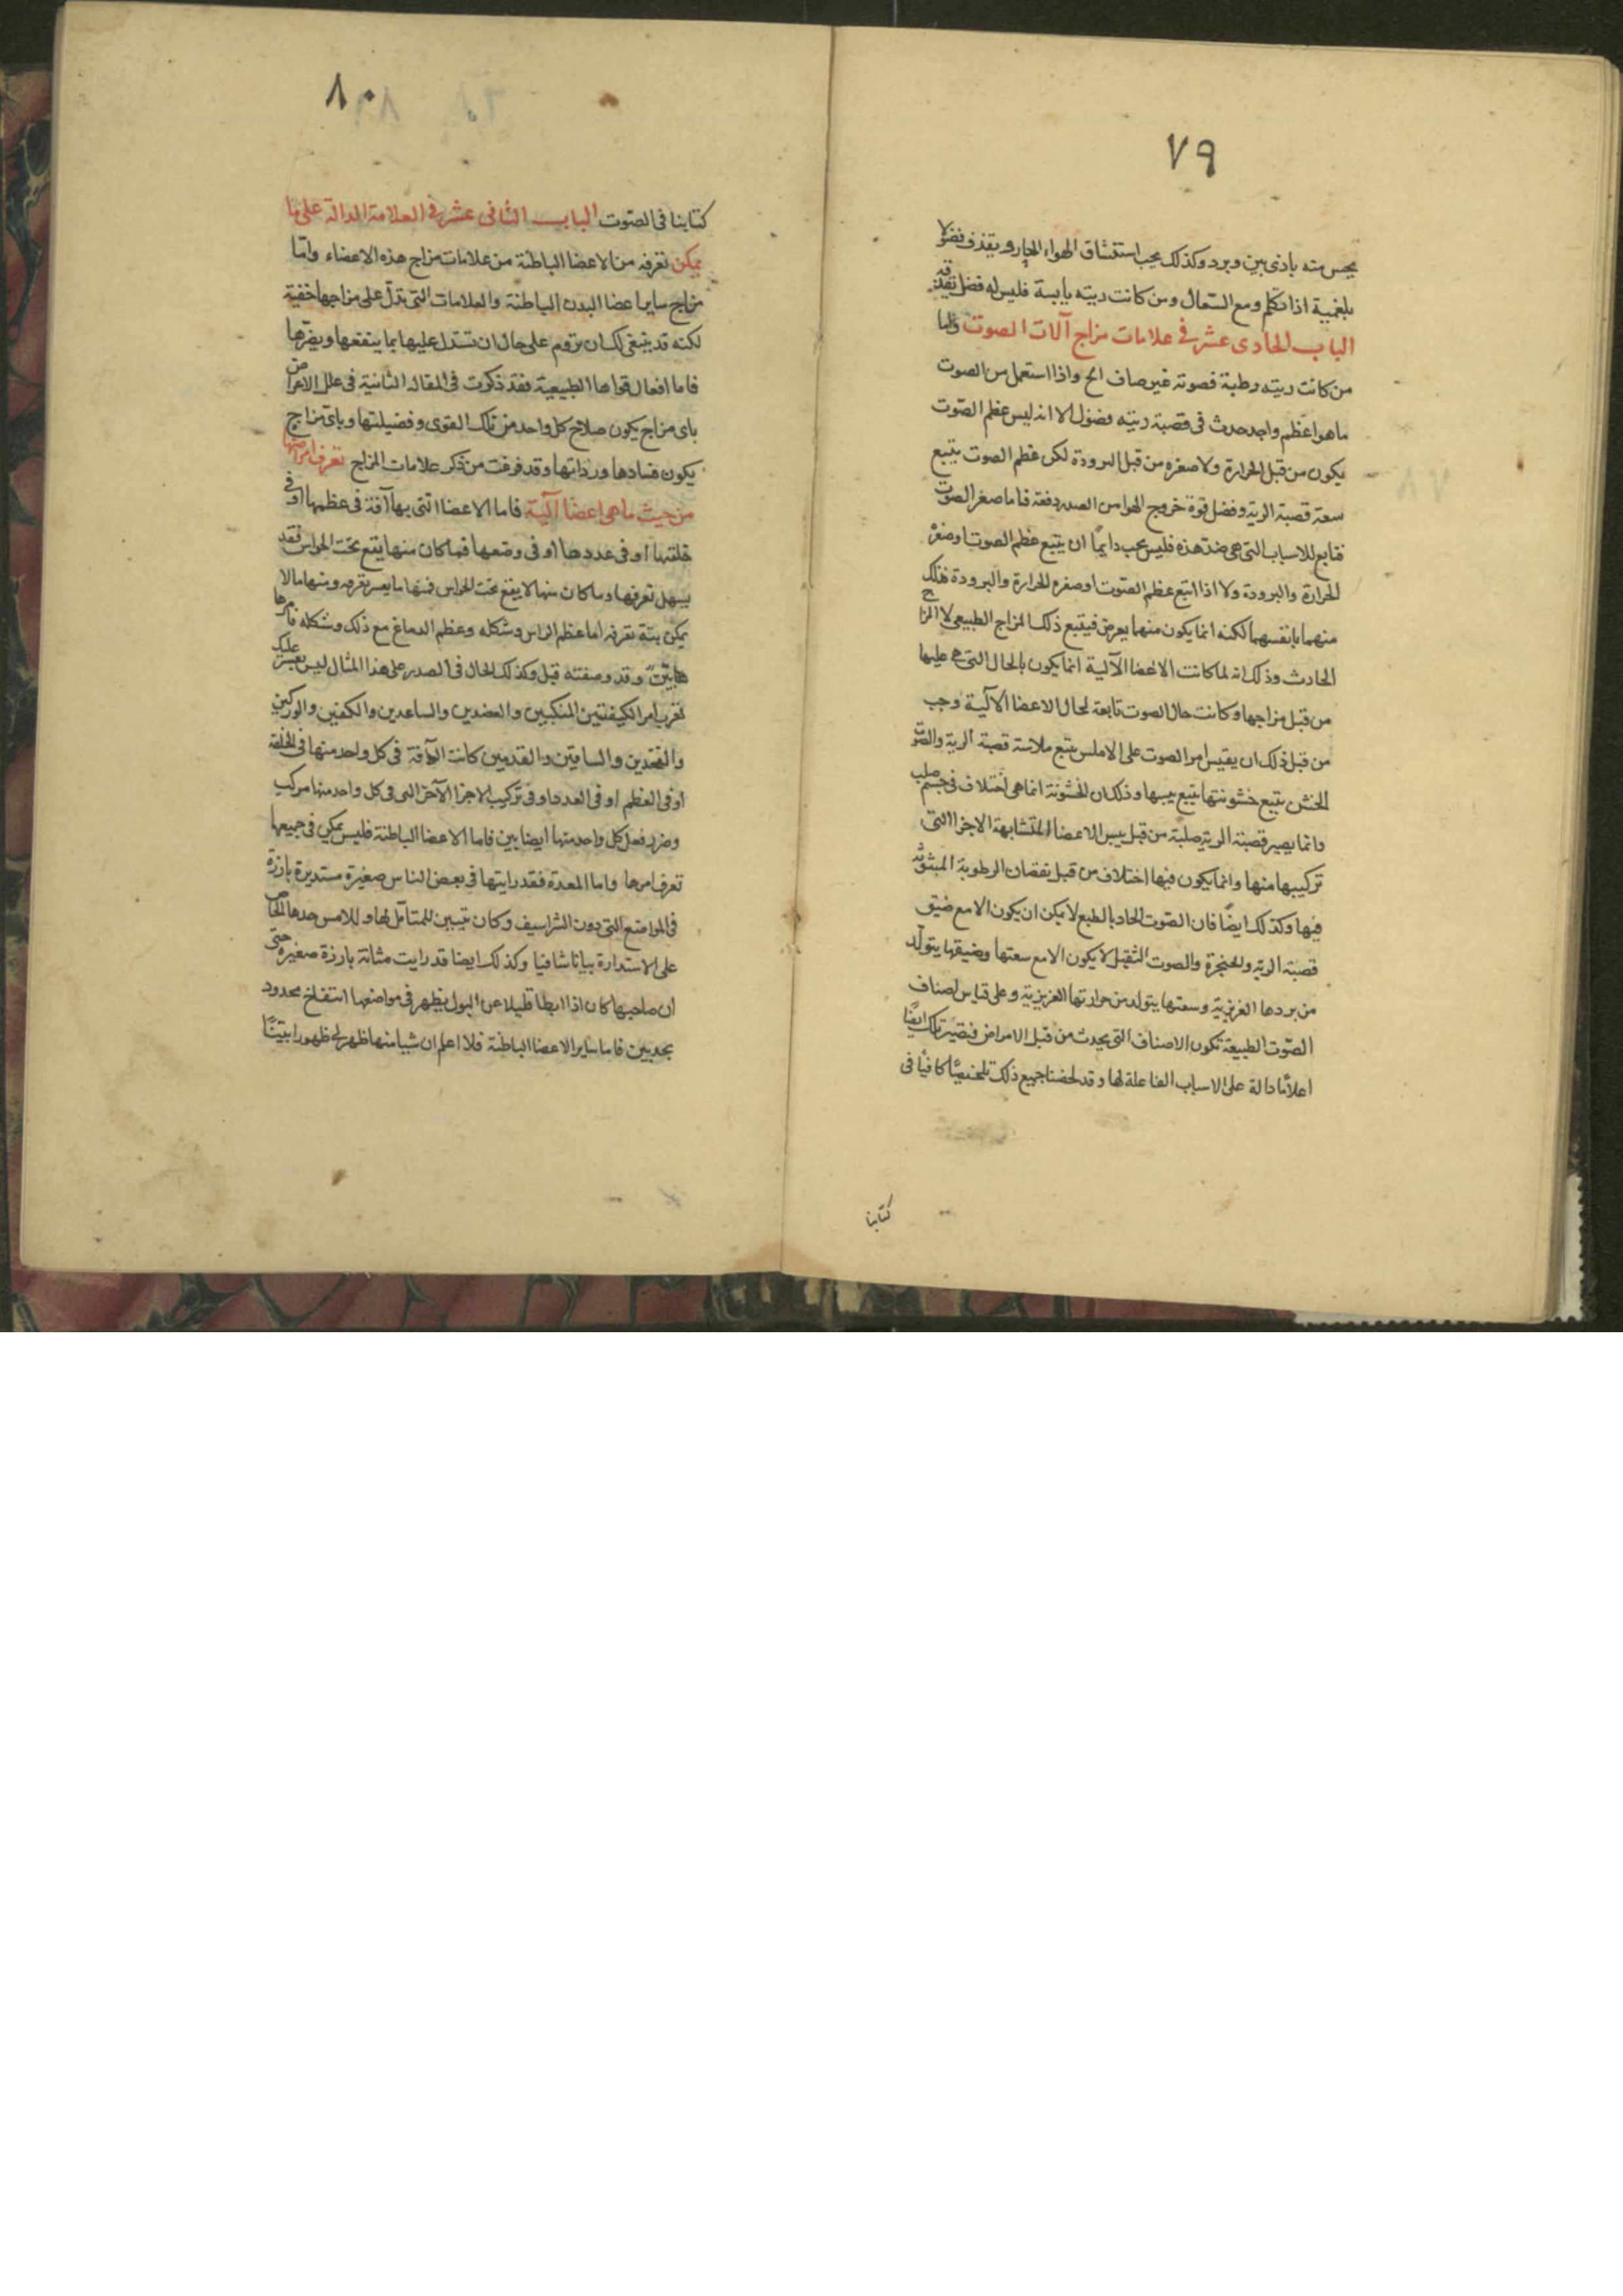 ٧٩
يحس منه باذى بين وبرد وكذلك يحب استنشاق الهواء الحار ويقذف فضولا
بلغمية اذا تكلم ومع السعال ومن كانت ريته يابسة فليس له فضل يقذفه
الباب الحادى عشر فى علامات مزاج آلات الصوت واما
من كانت ريته رطبة فصوته غير صاف ابح واذا استعمل من الصوت
ما هو اعظم واحد حدث فى قصبة ريته فضول الا انه ليس عظم الصوت
يكون من قبل الحرارة ولا صغره من قبل البرودة لكن عظم الصوت يتبع
سعة قصبة الرية وفضل قوة خروج الهوا من الصدر دفعة فاما صغر الصوت
فتابع للاسباب التى هى ضد هذه فليس يجب دايما ان يتبع عظم الصوت او صغره
الحرارة والبرودة ولا اذا اتبع عظم الصوت او صغره الحرارة والبرودة فتلك
منهما بانفسهما لكنه انما يكون منهما بعرض فيتبع ذلك المزاج الطبيعى لا المزاج
الحادث وذلك انه لما كانت الاعضا الآلية انما يكون بالحال التى هى عليها
من قبل مزاجها وكانت حال الصوت تابعة لحال الاعضا الآلية وجب
من قبل ذلك ان يقيس امر الصوت على الاملس يتبع ملاسة قصبة الرية والصوت
الخشن يتبع خشونتها يتبع يبسها وذلك ان الخشونة انما هى اختلاف فى جسم صلب
وانما يصير قصبة الرية صلبة من قبل يبس الاعضا المتشابهة الاجزا التى
تركيبها منها وانما يكون فيها اختلاف من قبل نقصان الرطوبة المبثوثة
فيها وكذلك ايضا فان الصوت الحاد بالطبع لا يمكن ان يكون الا مع ضيق
قصبة الرية والحنجرة والصوت الثقيل لا يكون الا مع سعتها وضيقها يتولد
من بردها الغريزية وسعتها يتولد من حرارتها الغريزية وعلى قياس اصناف
الصوت الطبيعة تكون الاصناف التى يحدث من قبل الامراض فتصير تلك ايضا
اعلاما دالة على الاسباب الفاعلة لها وقد لخصنا جميع ذلك تلخيصا كافيا فى
كتابنا
٨٠
كتابنا فى الصوت الباب الثانى عشر فى العلامة الدالة على ما
يمكن تعرفه من الاعضا الباطنة من علامات مزاج هذه الاعضاء واما
مزاج ساير اعضا البدن الباطنة والعلامات التى تدل على مزاجها خفية
لكنه قد ينبغى لك ان تروم على حال ان تستدل عليها بما ينفعها ويضرها
فاما افعال قواها الطبيعية فقد ذكرت فى المقالة الثانية فى علل الاعراض
باى مزاج يكون صلاح كل واحد من تلك القوى وفضيلتها وباى مزاج
يكون فسادها ورذاتها وقد فرغت من ذكر علامات المزاج تعرف امراضها
من حيث ما هى اعضا آلية فاما الاعضا التى بها آفة فى عظمها او فى
خلقتها او فى عددها او فى وضعها فما كان منها يقع تحت الحواس فقد
يسهل تعرفها وما كان منها لا يقع تحت الحواس فمنها ما يعسر تعرفه ومنها ما لا
يمكن بتة تعرفه اما عظم الراس وشكله وعظم الدماغ مع ذلك وشكله فامرها
هابين وقد وصفته قبل وكذلك الحال فى الصدر على هذا المثال ليس يعسر عليك
تعرف امر الكيفتين المنكبين والعضدين والساعدين والكفين والوركين
والفخدين والساقين والقدمين كانت الآفة فى كل واحد منها فى الخلقة
او فى العظم او فى العدد او فى تركيب الاجزا الآخر التى فى كل واحد منها مركب
وضرر فعل كل واحد منها ايضا بين فاما الاعضا الباطنة فليس يمكن فى جميعها
تعرف امرها واما المعدة فقد رايتها فى بعض الناس صغيرة مستديرة بارزة
فى المواضع التى دون الشراسيف وكان يتبين للمتامل لها وللامس حدها الخاص
على الاستدارة بيانا شافيا وكذلك ايضا قد رايت مثانة بارزة صغيرة حتى
ان صاحبها كان اذا ابطا قليلا عن البول يظهر فى مواضعها انتفاخ محدود
بحد بين فاما ساير الاعضا الباطنة فلا اعلم ان شيا منها ظهر لى ظهورا بينا